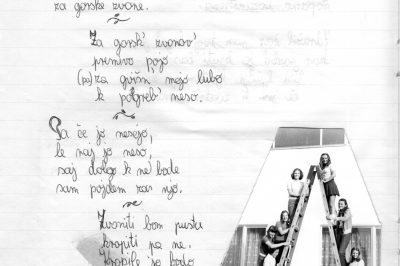 za gorske zvone.
Za gorsk' zvonov'
premivo pojo
(pa) za gvišn' mojo lubo
k pogreb' neso.
Pa če jo nesejo,
le naj jo neso,
saj dolgo k ne bode
sam pojdem zas njo.
Zvoniti bom pustu
kropiti pa ne.
Kropile jo bodo